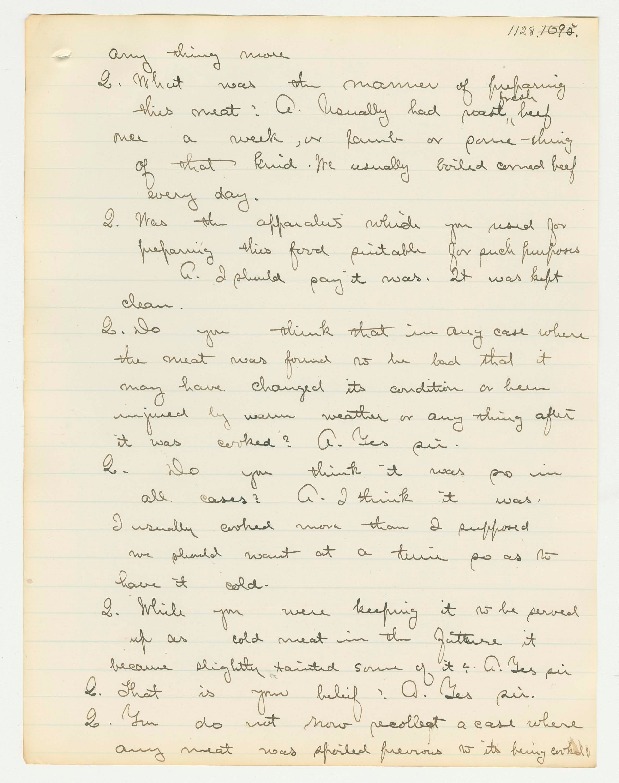 1128. 1095.
any thing more
Q. What was the manner of preparing
this meat? A. Usually had roast, fresh beef
once a week, or lamb or some-thing
of that kind. We usually boiled corned beef
every day.
Q. Was the apparatus which you used for
preparing this food suitable for such purposes
A. I should say it was. It was kept
clean.
Q. Do you think that in any case where
the meat was found to be bad that it
may have changed its condition or been
injured by warm weather or any thing after
it was cooked? A. Yes sir.
Q. Do you think it was so in
all cases? A. I think it was.
I usually cooked more than I supposed
we should want at a time so as to
have it cold.
Q. While you were keeping it to be served
up as cold meat in the future it
became slightly tainted some of it? A. Yes sir
Q. That is your belief? A. Yes sir.
Q. You do not now recollect a case where
any meat was spoiled previous to its being cooked?